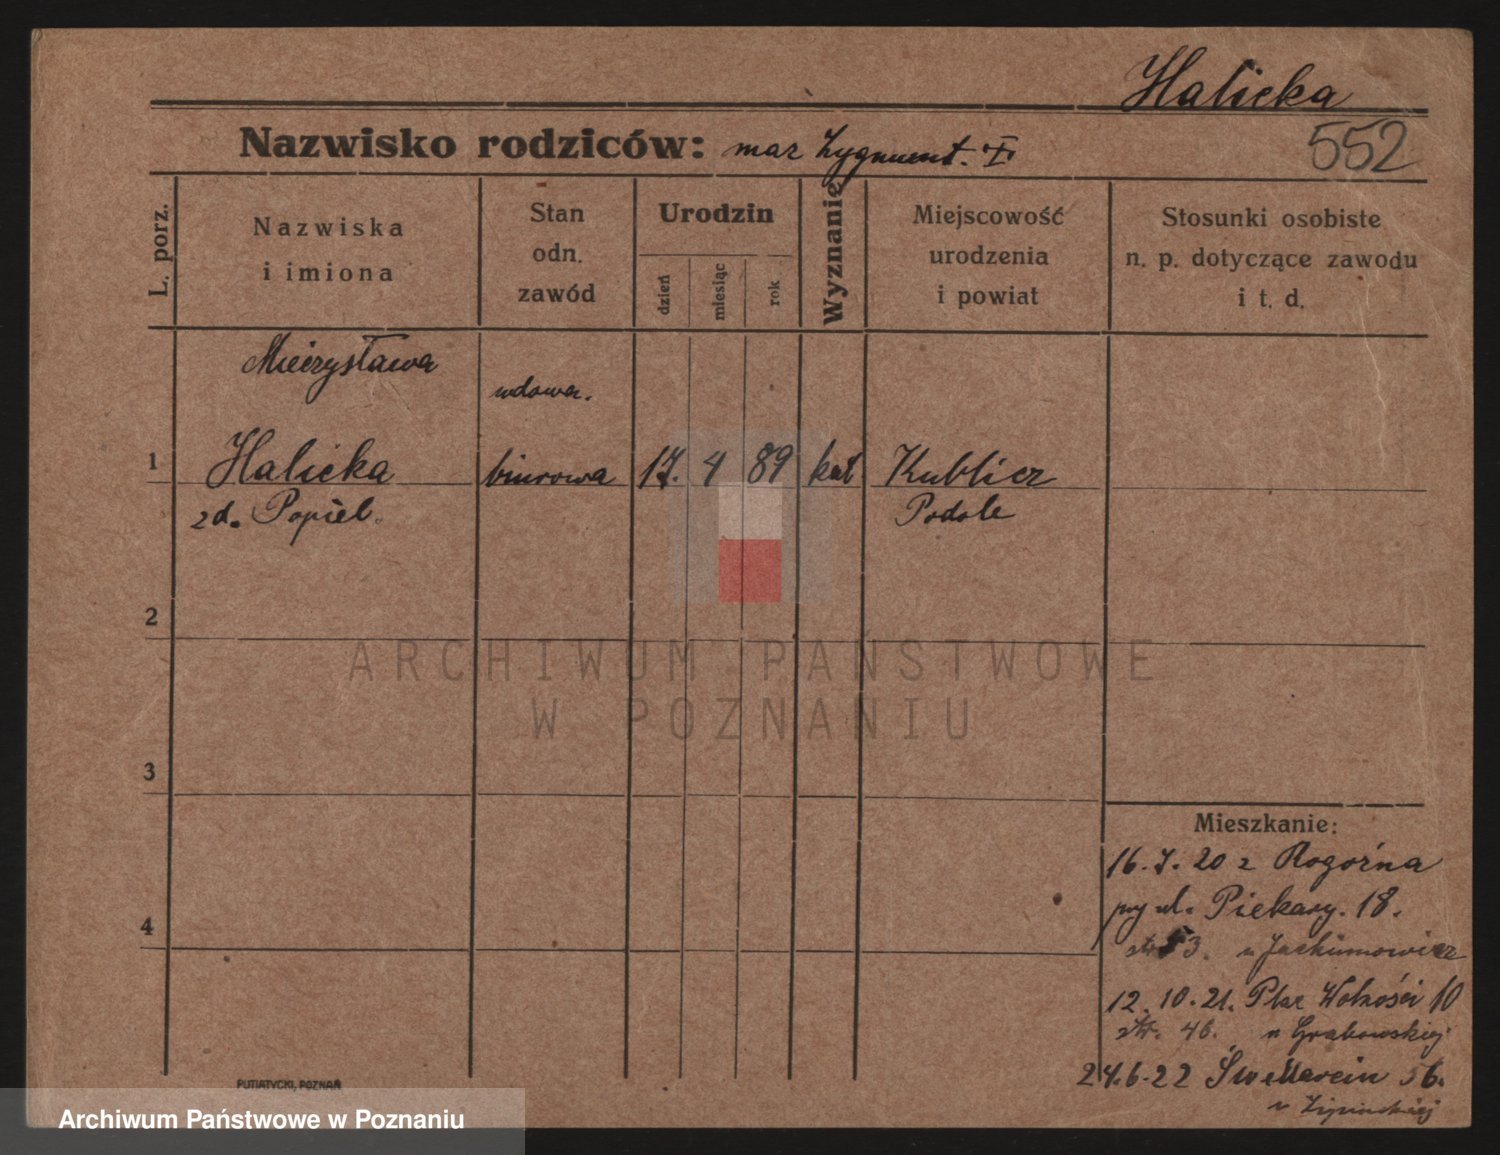 Halicka
Nazwisko rodziców: mąż Zygmunt. †
552
L. porz.
Nazwiska
i imiona
Stan
odn.
zawód
Urodzin
dzień
miesiąc
rok
Wyznanie
Miejscowość
urodzenia
i powiat
Stosunki osobiste
n. p. dotyczące zawodu
i t. d.
Mieczysława
wdowa.
1 Halicka biurowa 17. 4 89 kat Kublicz
zd. Popiel. Podole
2
ARCHIWUM PAŃSTWOWE
W POZNANIU
3
Mieszkanie:
16.7.20 z Rogoźna
przy ul. Piekary. 18.
53. u Jachimowicz
4
12.10.21. Plac Wolności 10
str. 46. u Grabowskiej
24.6.22 Św Marcin 56.
u Lipińskiej
PUTIATYCKI, POZNAŃ
Archiwum Państwowe w Poznaniu